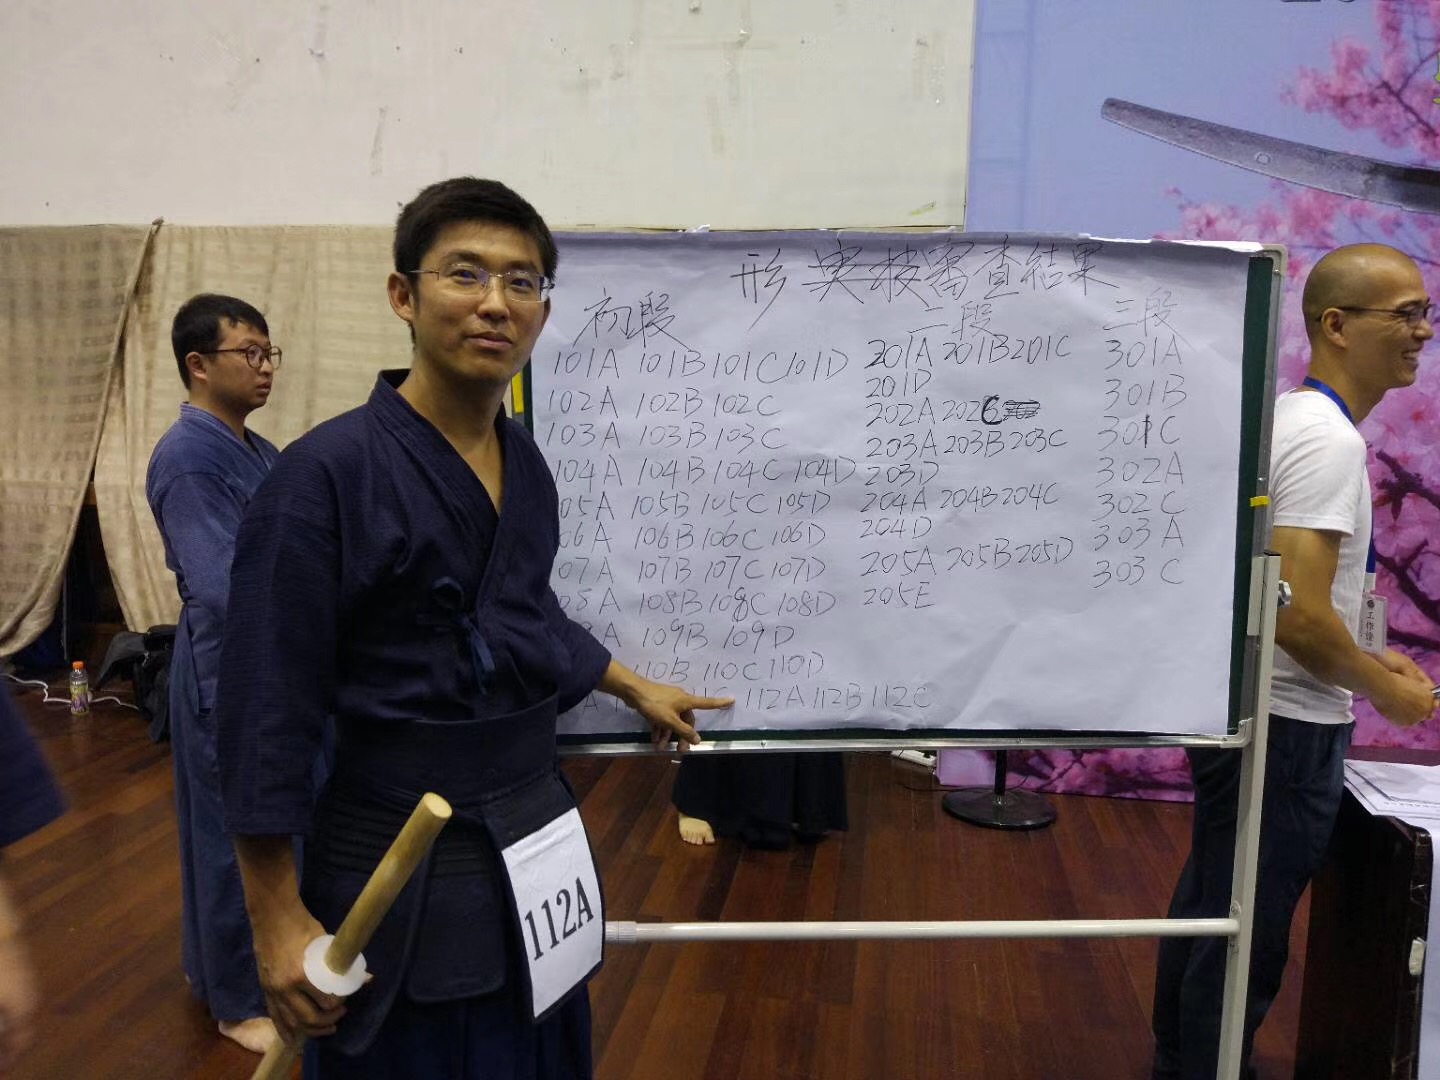 形 実技審査結果
初段
二段
三段
101A 101B 101C 101D
102A 102B 102C
103A 103B 103C
104A 104B 104C 104D
05A 105B 105C 105D
06A 106B 106C 106D
07A 107B 107C 107D
08A 108B 108C 108D
A 109B 109D
110B 110C 110D
112A 112B 112C
201A 201B 201C
201D
202A 202C
203A 203B 203C
203D
204A 204B 204C
204D
205A 205B 205D
205E
301A
301B
301C
302A
302C
303A
303C
112A
工作證